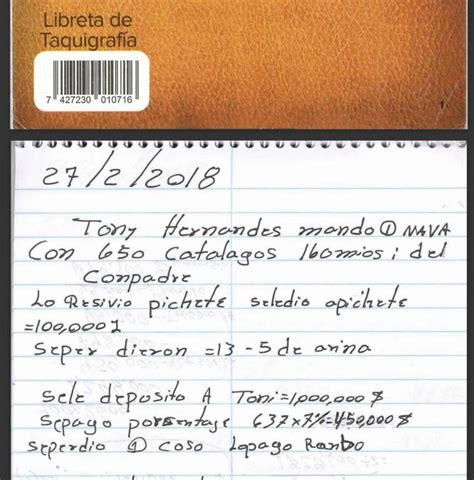 Libreta de
Taquigrafía
7 427230 010716
1
27/2/2018
Tony Hernandes mando ① NAVA
Con 650 Catalagos 160mios ; del
Conpadre
Lo Resivio pichete seledio apichete
=100,000
Seper dieron =13 - 5 de arina
sele deposito A Toni=1,000,000 $
Sepago porsentaje 637x7%=450,000 $
seperdio ① coso Lopago Ranbo